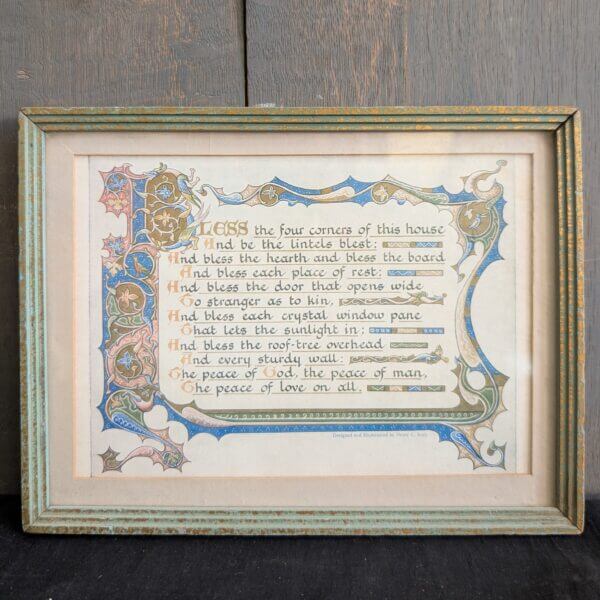 BLESS the four corners of this house
And be the lintels blest:
And bless the hearth and bless the board
And bless each place of rest:
And bless the door that opens wide
To stranger as to kin,
And bless each crystal window pane
That lets the sunlight in:
And bless the roof-tree overhead
And every sturdy wall:
The peace of God, the peace of man,
The peace of love on all.
Designed and Illuminated by